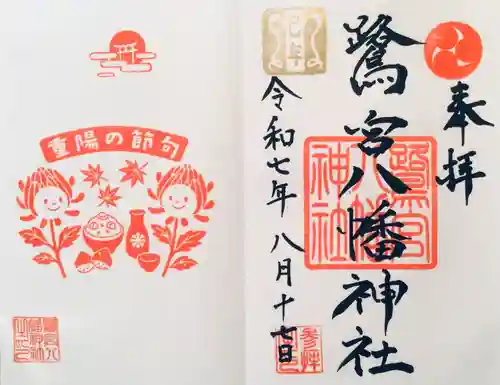 奉拝
鷺宮八幡神社
令和七年 八月十七日
鷺宮八幡神社
己年
参拝
重陽の節句